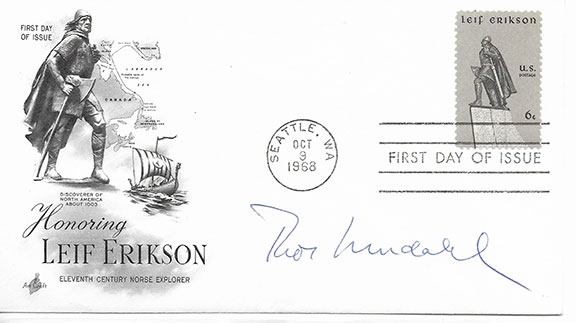 FIRST DAY
OF ISSUE
LABRADOR
SEA
CANADA
DISCOVERER OF
NORTH AMERICA
ABOUT 1003
Honoring
LEIF ERIKSON
ELEVENTH CENTURY NORSE EXPLORER
SEATTLE, WA
OCT
9
1968
leif erikson
u.s.
postage
6¢
FIRST DAY OF ISSUE
Thor Heyerdahl